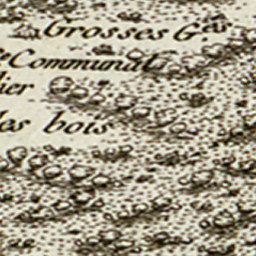 Grosses Ges
e Communal
lier
les bois